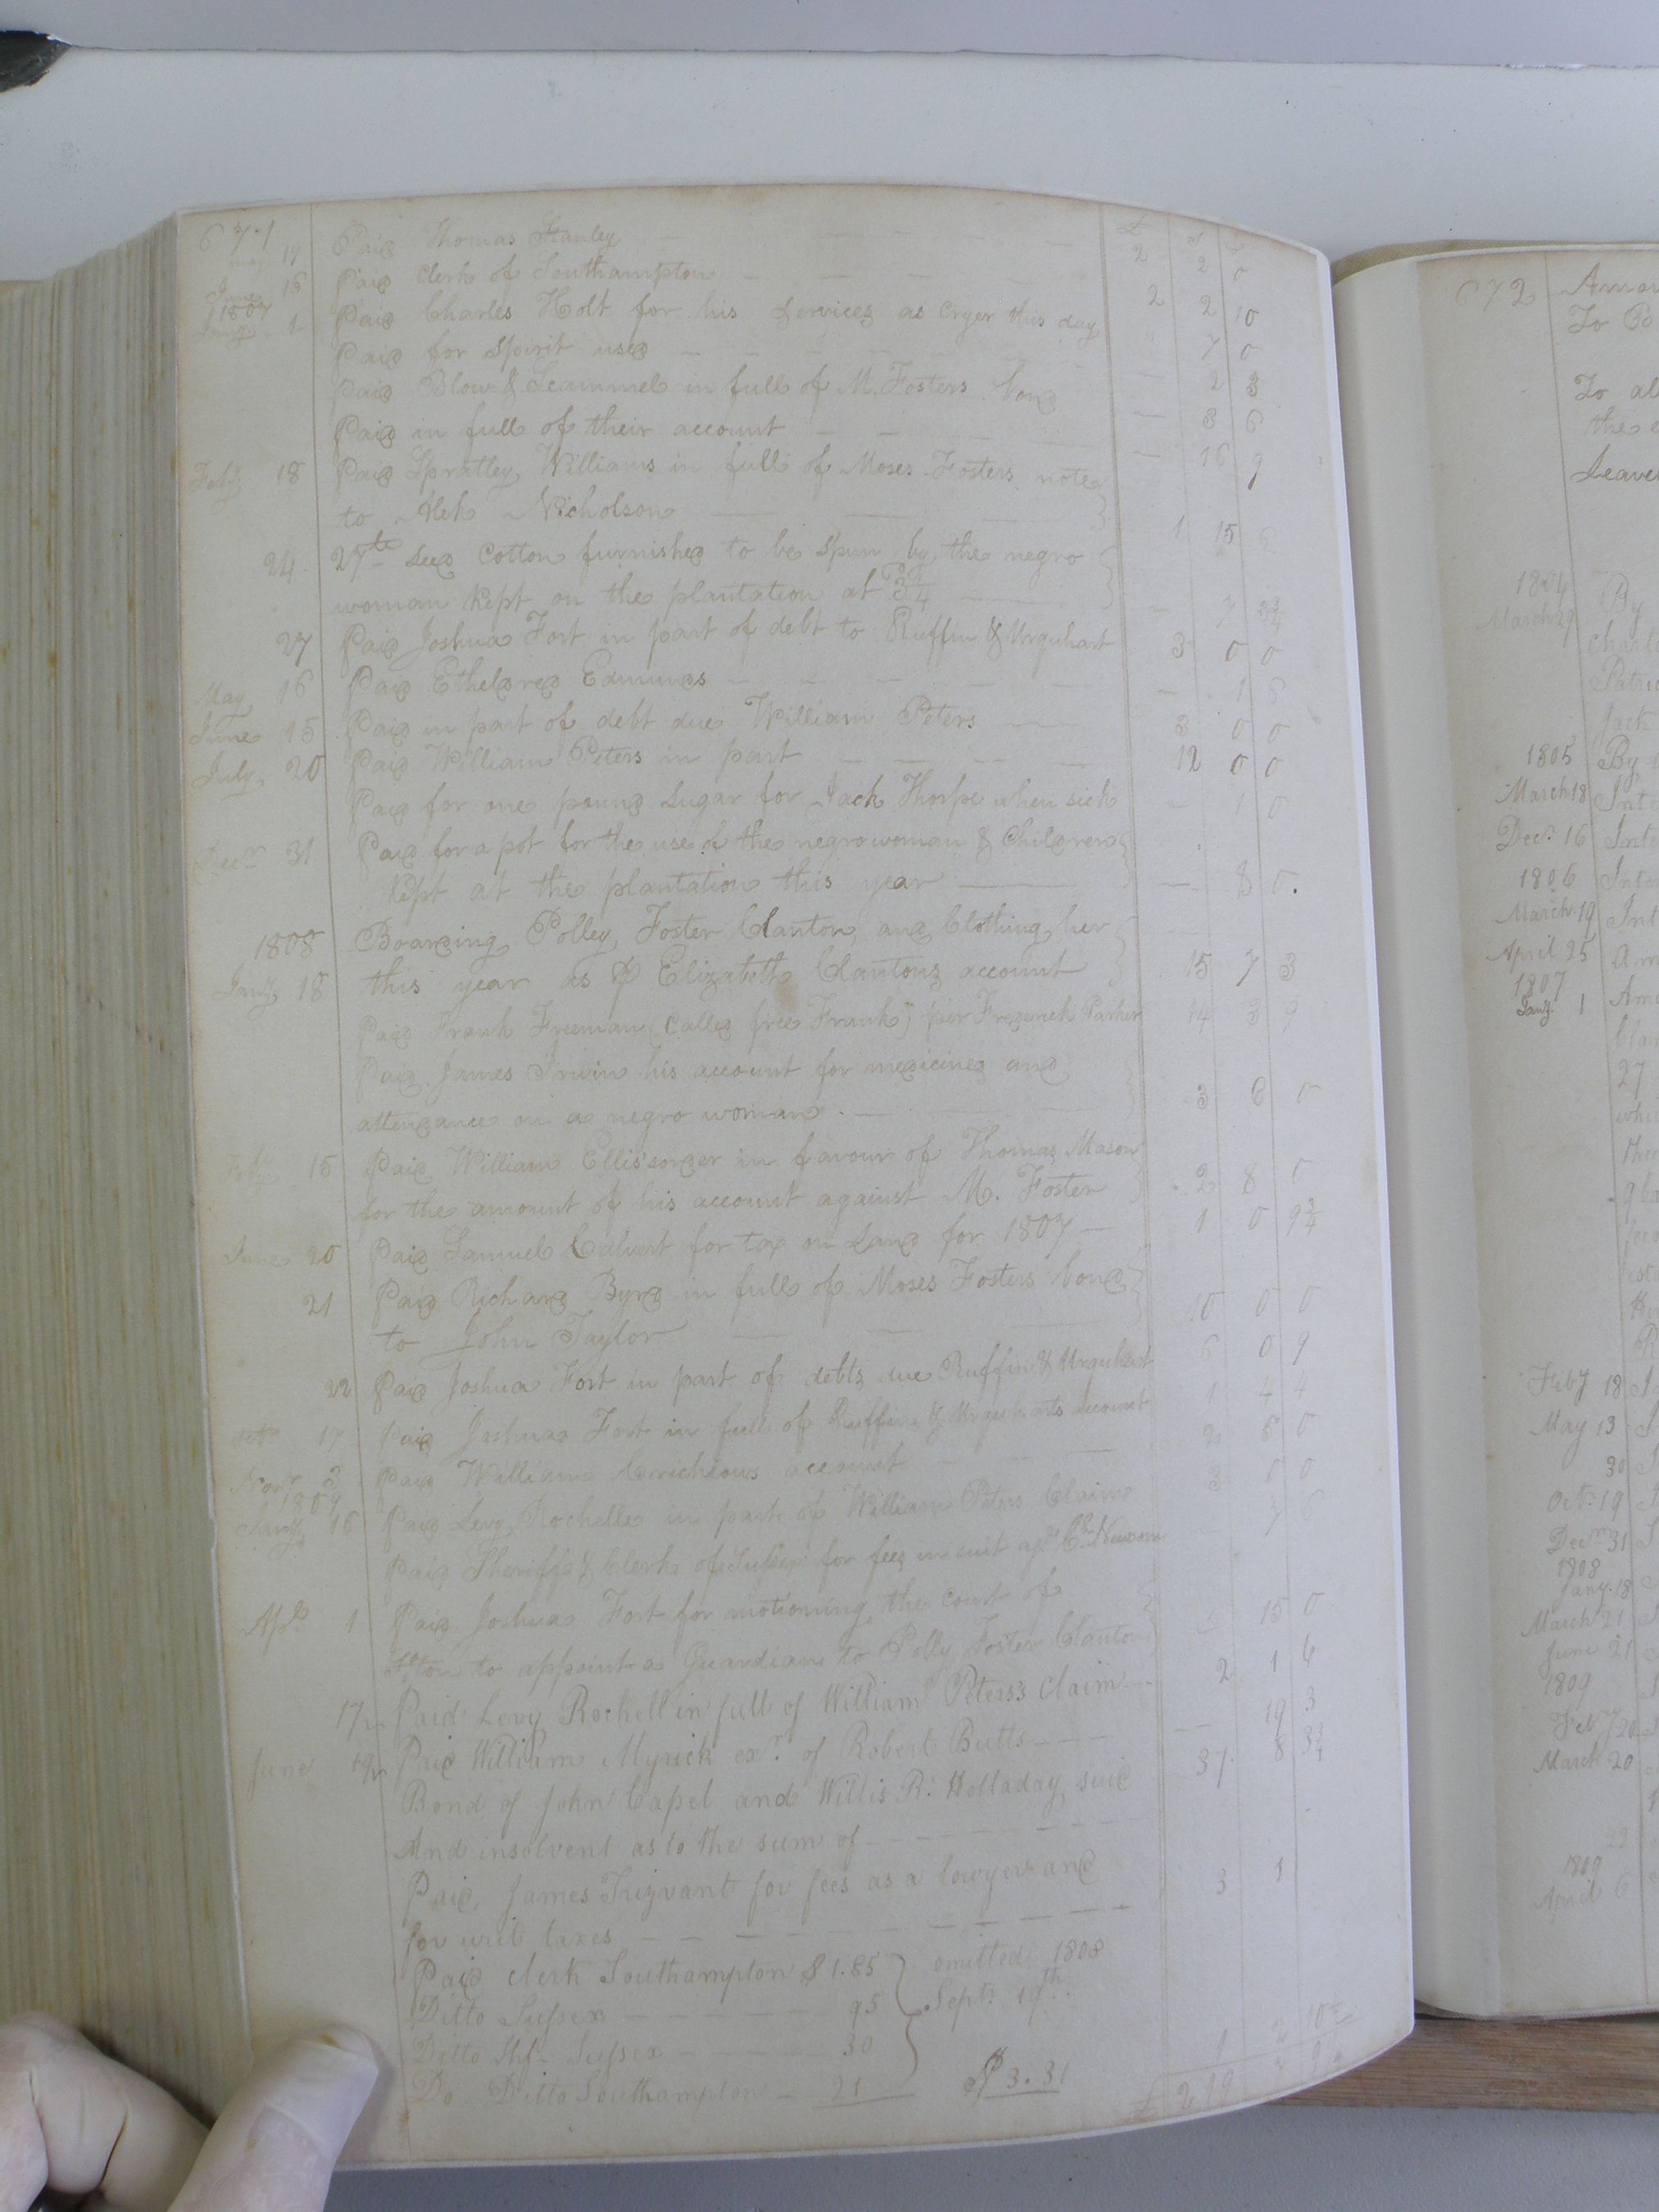 671
£ s d
May 17 Paid Thomas Stanley — — — 2 2 0
June 16 Paid Clerk of Southampton — — — 2 2 10
1807
Jany. 1 Paid Charles Holt for his services as Cryer this day " 7 0
Paid for Spirit used — — — — 2 3
Paid Blow & Scammel in full of M. Fosters bond — 8 6
Paid in full of their account — — — 16 9
Feby 18 Paid Spratley Williams in full of Moses Fosters note
to Alek Nicholson — — 1 15
24 27 lb Seed Cotton furnished to be spun by the negro
woman kept on the plantation at 3 1/4 — — 7 3 3/4
27 Paid Joshua Fort in part of debt to Ruffin & Urquhart 3 0 0
May 16 Paid Etheldred Edmunds — — — 1 6
June 15 Paid in part of debt due William Peters — 3 0 0
July 20 Paid William Peters in part — — 12 0 0
Paid for one pound Sugar for Jack Thorpe when sick — 1 0
Decr 31 Paid for a pot for the use of the negro woman & Children
kept at the plantation this year — — 8 0
1808
Jany 18 Boarding Polley Foster Clanton and Clothing her
this year as p Elizabeth Clantons account 15 7 3
Paid Frank Freeman (called free Frank) per Frederick Parker 14 3 9
Paid James Irwin his account for medicine and
attendance on a negro woman — 3 6 0
Feby 15 Paid William Ellis's order in favour of Thomas Mason
for the amount of his account against M. Foster 2 8 0
June 20 Paid Samuel Calvert for tax on Land for 1807 — 1 0 9 3/4
21 Paid Richard Byrd in full of Moses Fosters bond
to John Taylor — — — 10 0 0
22 Paid Joshua Fort in part of debts due Ruffin & Urquhart 6 0 9
17 Paid Joshua Fort in full of Ruffin & Urquharts account 1 4 4
Novr 3 Paid William Crichlows account — — 2 6 0
1809
Jany 16 Paid Levy Rochelle in part of William Peters Claim 3 0 0
Paid Sheriff & Clerk of Sussex for fees in suit agst. Newsom — 7 6
Apl. 1 Paid Joshua Fort for motioning the Court of
to appoint a Guardian to Polly Foster Clanton — 15 0
17 Paid Levy Rochell in full of William Peters's Claim — 2 1 6
June 19 Paid William Myrick exr. of Robert Butts — — — 19 3
Bond of John Capel and Willis R. Holladay sued 37 8 3 1/4
And insolvent as to the sum of — — —
Paid James Trizvant for fees as a lowyer and
for writ taxes — — — 3 1
Paid clerk Southampton $1.85 } omitted 1808
Ditto Sussex — — — 95 } Sept. 19th
Ditto Shf. Sussex — — — 30
Do Ditto Southampton — 21 $3.31 1 2 10
£
672
To
To al
the
Leave
1804
March 29 By
Charl
Patric
Jack
1805 By
March 18 Inte
Decr. 16 Inte
1806 Inte
March 19 Int
April 25 Am
1807
Jany. 1 Amo
Clan
27
whi
Feby 18
May 13
30
Octr. 19
Decr. 31
1808
Jany. 18
March 21
June 21
1809
Feby 20
March 20
1809
April 6